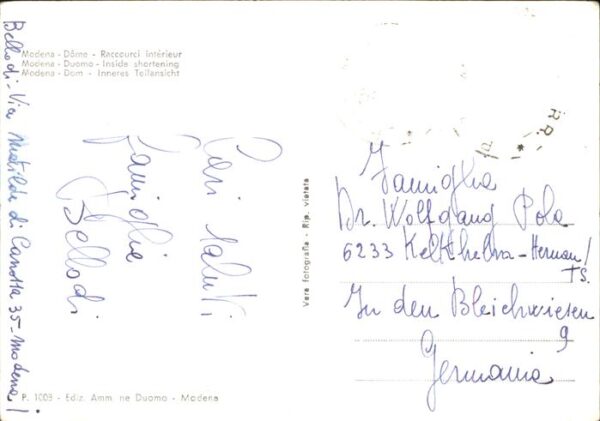 Modena - Dôme - Raccourci intérieur
Modena - Duomo - Inside shortening
Modena - Dom - Inneres Teilansicht
Bellodi - Via Matilde di Canossa 35 - Modena
Cari saluti
Famiglia
Bellodi
Vera fotografia - Rip. vietata
Famiglia
Dr. Wolfgang Pola
6233 Kelkheim - Hornau/
TS.
In den Bleichwiesen
9
Germania
P. 1008 - Ediz. Amm. ne Duomo - Modena